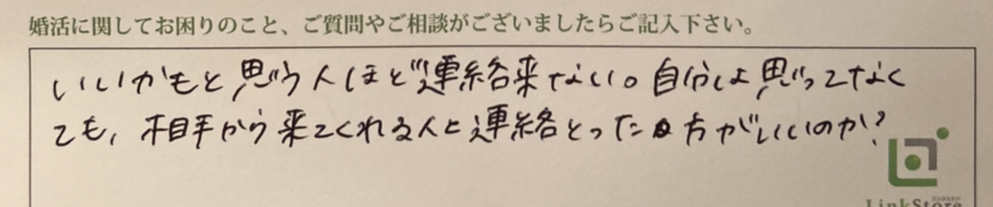 婚活に関してお困りのこと、ご質問やご相談がございましたらご記入下さい。
いいかもと思う人ほど連絡来ない。自分は思ってなく
ても、相手から来てくれる人と連絡とった方がいいのか?
LinkStore